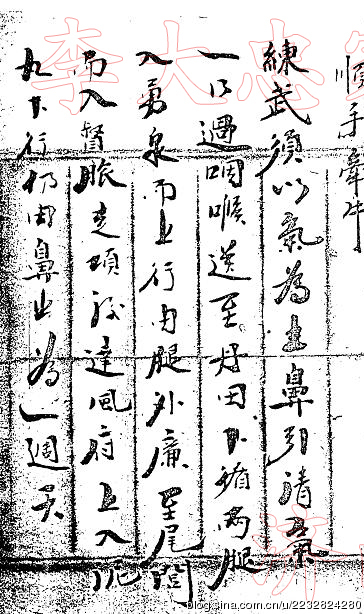 順手牽牛
練武須以氣為主鼻引清氣
一口過咽喉送至丹田下循两腿
入勇泉而上行由腿外廉至尾閭
而入督脈走項後達風府上入泥
丸下行仍由鼻出為一週天
李大忠
blog.sina.com.cn/u/2232824285